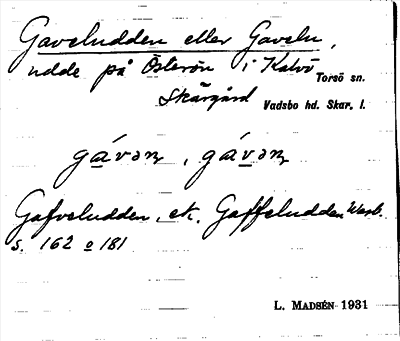 Gaveludden eller Gaveln,
udde på Österön i Kalvö Torsö sn.
Skärgård Vadsbo hd. Skar. l.
gávən, gávən
Gafveludden, ek. Gaffeludden Wærb.
s. 162 o 181
L. MADSÉN 1931